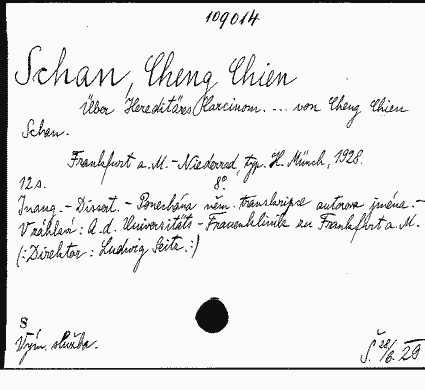 109014
Schan, Cheng Chien
Über Hereditäres Karcinom. ... von Cheng Chien
Schan.
Frankfurt a. M. - Niederrad, typ. H. Münch, 1928.
12 s. 8°.
Inaug. - Dissert. - Ponechána něm. transkripce autorova jména. -
V záhlaví: A. d. Universitäts - Frauenklinik zu Frankfurt a. M.
(: Direktor: Ludwig Seitz. :)
S
Vým. služba.
Š. 28/6. 29